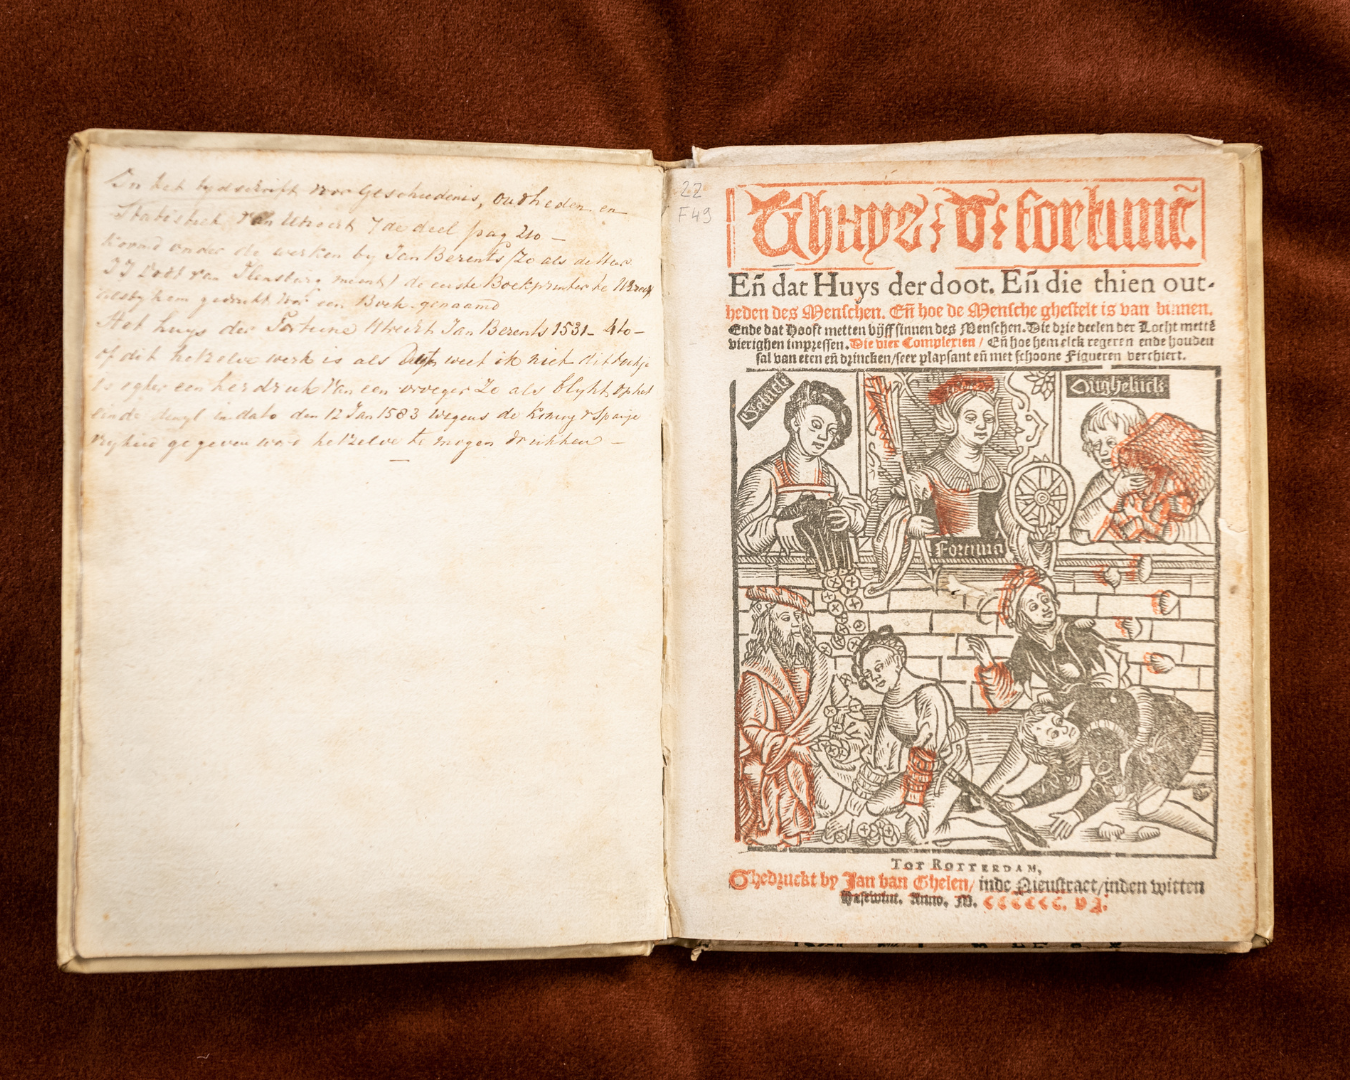 In het tydschrift voor Geschiedenis, oudheden en
Statistiek van Utrecht 7de deel pag 210 –
komd onder de werken by Jan Berents zo als de Heer
gedrukt een Boek genaamd
Het huys der Fortune Utrecht Jan Berents 1531 – 4to –
of dit hetzelve werk is als dit weet ik niet dit boekje
is egter een herdruk van een vroeger zo als blykt op het
einde dewyl in dato den 12 Jan 1583 wegens de Koning v Spanje
vryheid gegeven word hetzelve te mogen drukken –
22
F49
Thuys der fortunē.
En̄ dat Huys der doot. En̄ die thien out-
heden des Menschen. En̄ hoe de Mensche ghestelt is van binnen.
Ende dat Hooft metten vijff sinnen des Menschen. Die drie deelen der Locht mettē
vierighen impressen. Die vier Complexien / En̄ hoe hem elck regeren ende houden
sal van eten en̄ drincken / seer playsant en̄ met schoone Figueren verchiert.
Gheluck
Fortuna
Ongheluck
TOT ROTTERDAM,
Ghedruckt by Jan van Ghelen / inde Nieustraet / inden witten
Hasewint. Anno. M.